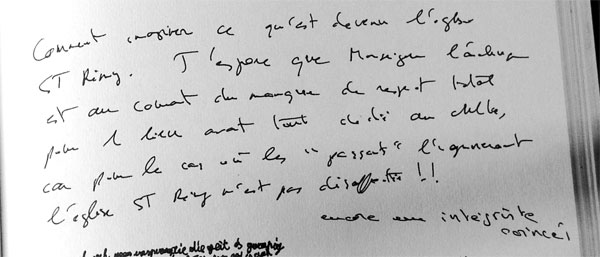 Comment imaginer ce qu'est devenu l'église
ST Rémy. J'espère que Monseigneur l'archevêque
est au courant du manque de respect total
pour 1 lieu avant tout dédié au culte,
car pour le cas où les "passants" l'ignoreraient
l'église ST Rémy n'est pas désaffectée !!
encore un intégriste
coincé !